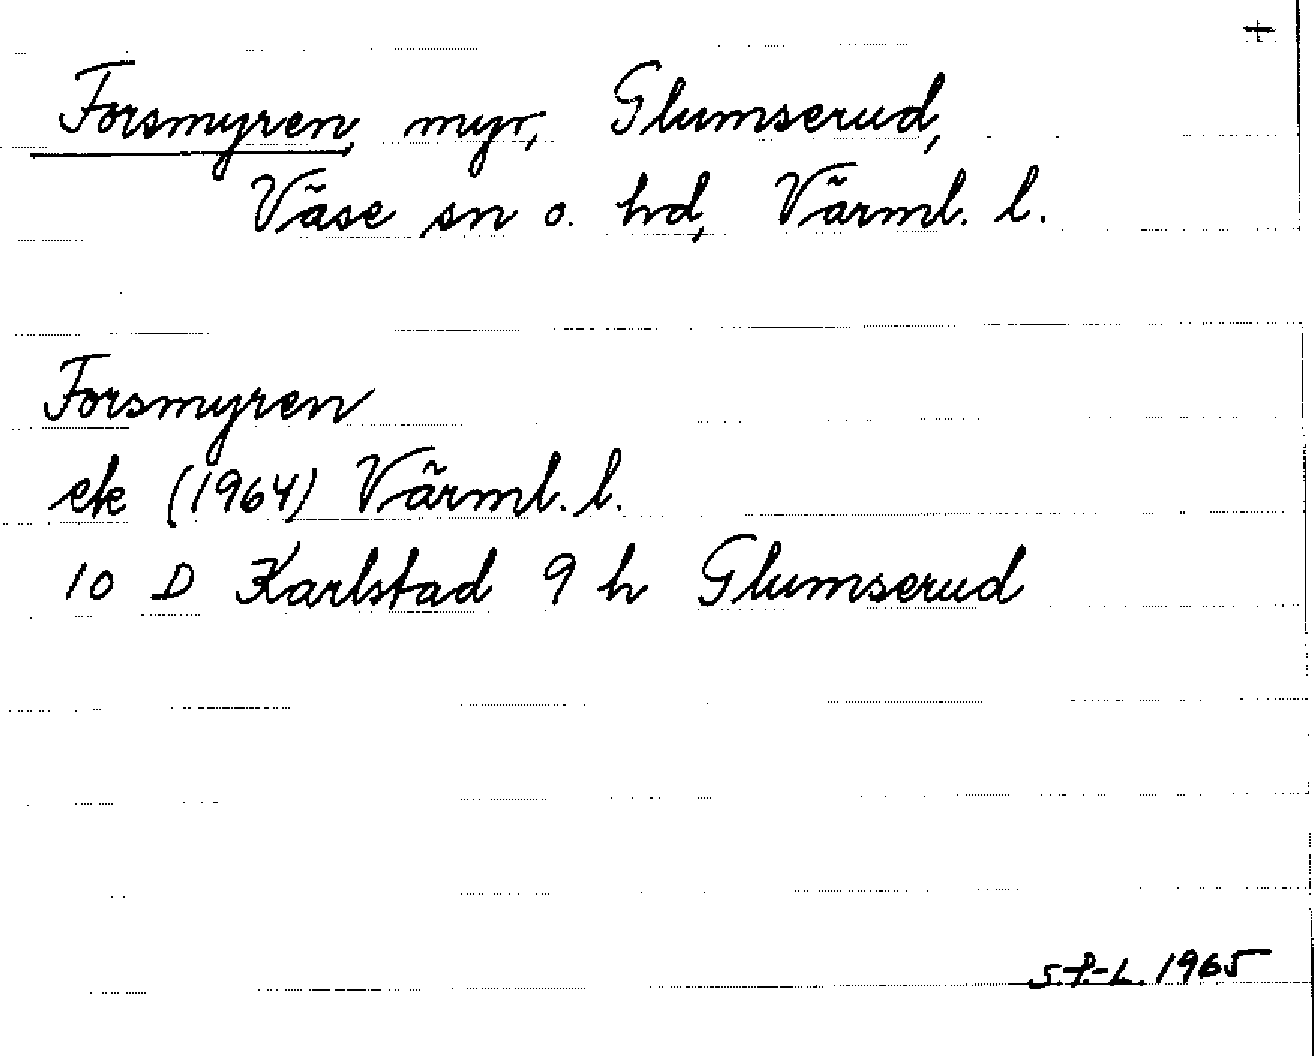 +
Forsmyren, myr, Glumserud,
Väse sn o. hd, Värml. l.
Forsmyren
ek (1964) Värml. l.
10 D Karlstad 9 h Glumserud
S.P.-L. 1965